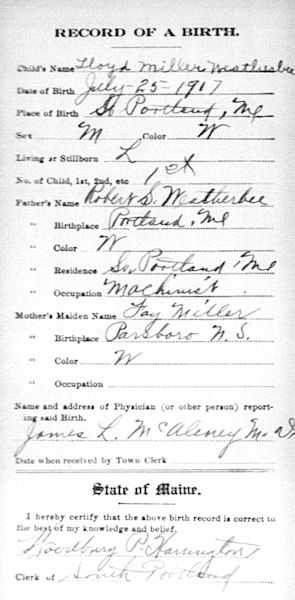 RECORD OF A BIRTH.
Child's Name Lloyd Miller Weatherbee
Date of Birth July-25-1917
Place of Birth So Portland, Me
Sex M Color W
Living or Stillborn L
No. of Child, 1st, 2nd, etc 1st
Father's Name Robert S. Weatherbee
" Birthplace Portland, Me
" Color W
" Residence So. Portland, Me
" Occupation Machinist
Mother's Maiden Name Fay Miller
" Birthplace Parsboro N. S.
" Color W
" Occupation
Name and address of Physician (or other person) report-
ing said Birth.
James L. McAleney M.D.
Date when received by Town Clerk
State of Maine.
I hereby certify that the above birth record is correct to
the best of my knowledge and belief.
Woodbury P. Harrington
Clerk of South Portland